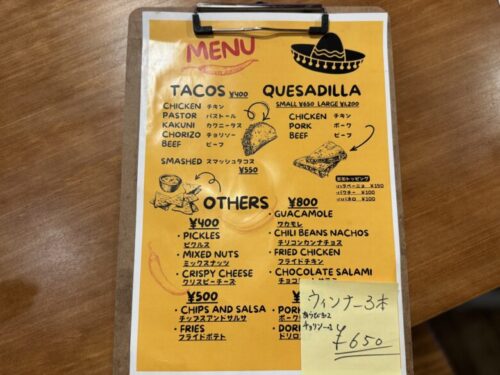 MENU
TACOS ¥400
CHICKEN チキン
PASTOR パストール
KAKUNI カワニータス
CHORIZO チョリソー
BEEF ビーフ
SMASHED スマッシュタコス
¥550
QUESADILLA
SMALL ¥650 LARGE ¥1,200
CHICKEN チキン
PORK ポーク
BEEF ビーフ
追加トッピング
ハラペーニョ ¥150
パクチー ¥100
ハバネロ ¥100
OTHERS
¥400
・PICKLES
ピクルス
・MIXED NUTS
ミックスナッツ
・CRISPY CHEESE
クリスピーチーズ
¥500
・CHIPS AND SALSA
チップスアンドサルサ
・FRIES
フライドポテト
¥800
・GUACAMOLE
ワカモレ
・CHILI BEANS NACHOS
チリコンカンナチョス
・FRIED CHICKEN
フライドチキン
・CHOCOLATE SALAMI
チョコ
ウィンナー3本
¥650